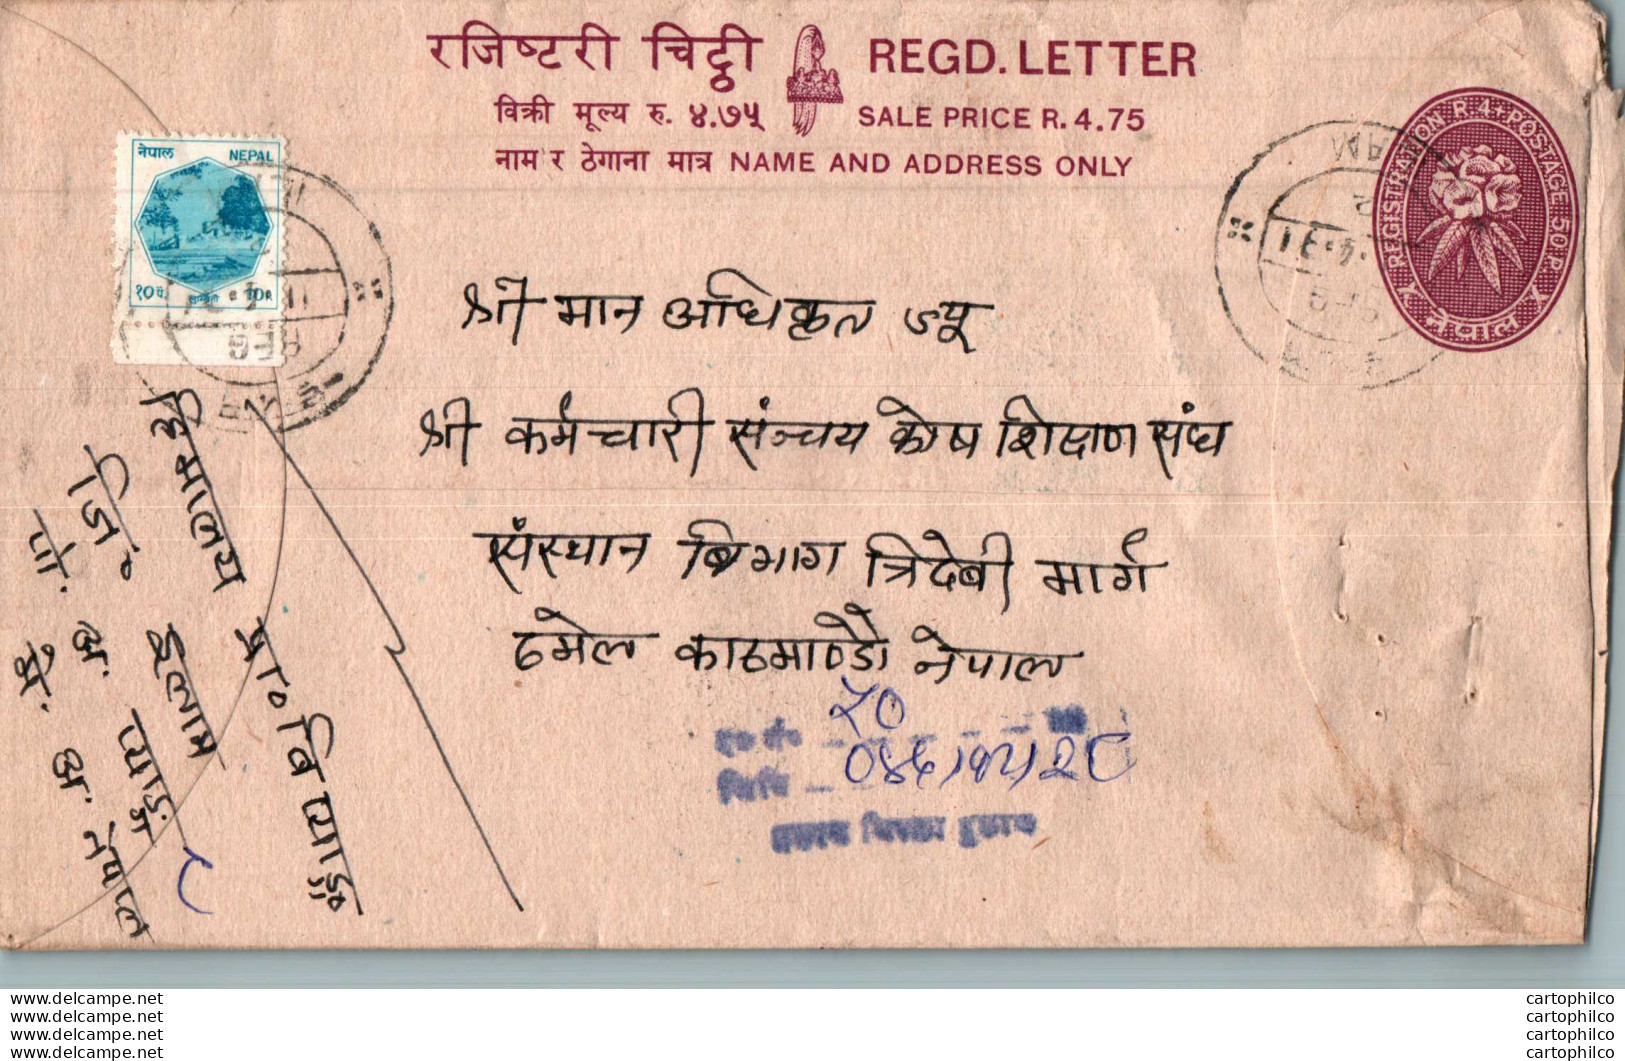 रजिष्टरी चिट्ठी REGD. LETTER
विक्री मूल्य रु. ४.७५ SALE PRICE R. 4.75
नाम र ठेगाना मात्र NAME AND ADDRESS ONLY
नेपाल NEPAL
१०पै. 10P.
REGISTRATION R.4 + POSTAGE 50 P.
नेपाल
AM
REG
श्री मान अधिकृत ज्यू
श्री कर्मचारी संञ्चय कोष शिक्षण संघ
संस्थान बिभाग त्रिदेबी मार्ग
ठमेल काठमाण्डौ नेपाल
हिमालय प्रा॰ वि प्याङ्ग
जि॰ इलाम
पो. अ. प्याङ्ग
मे. अ. नेपाल
२०
मिति
www.delcampe.net cartophilco
www.delcampe.net cartophilco
www.delcampe.net cartophilco
www.delcampe.net cartophilco